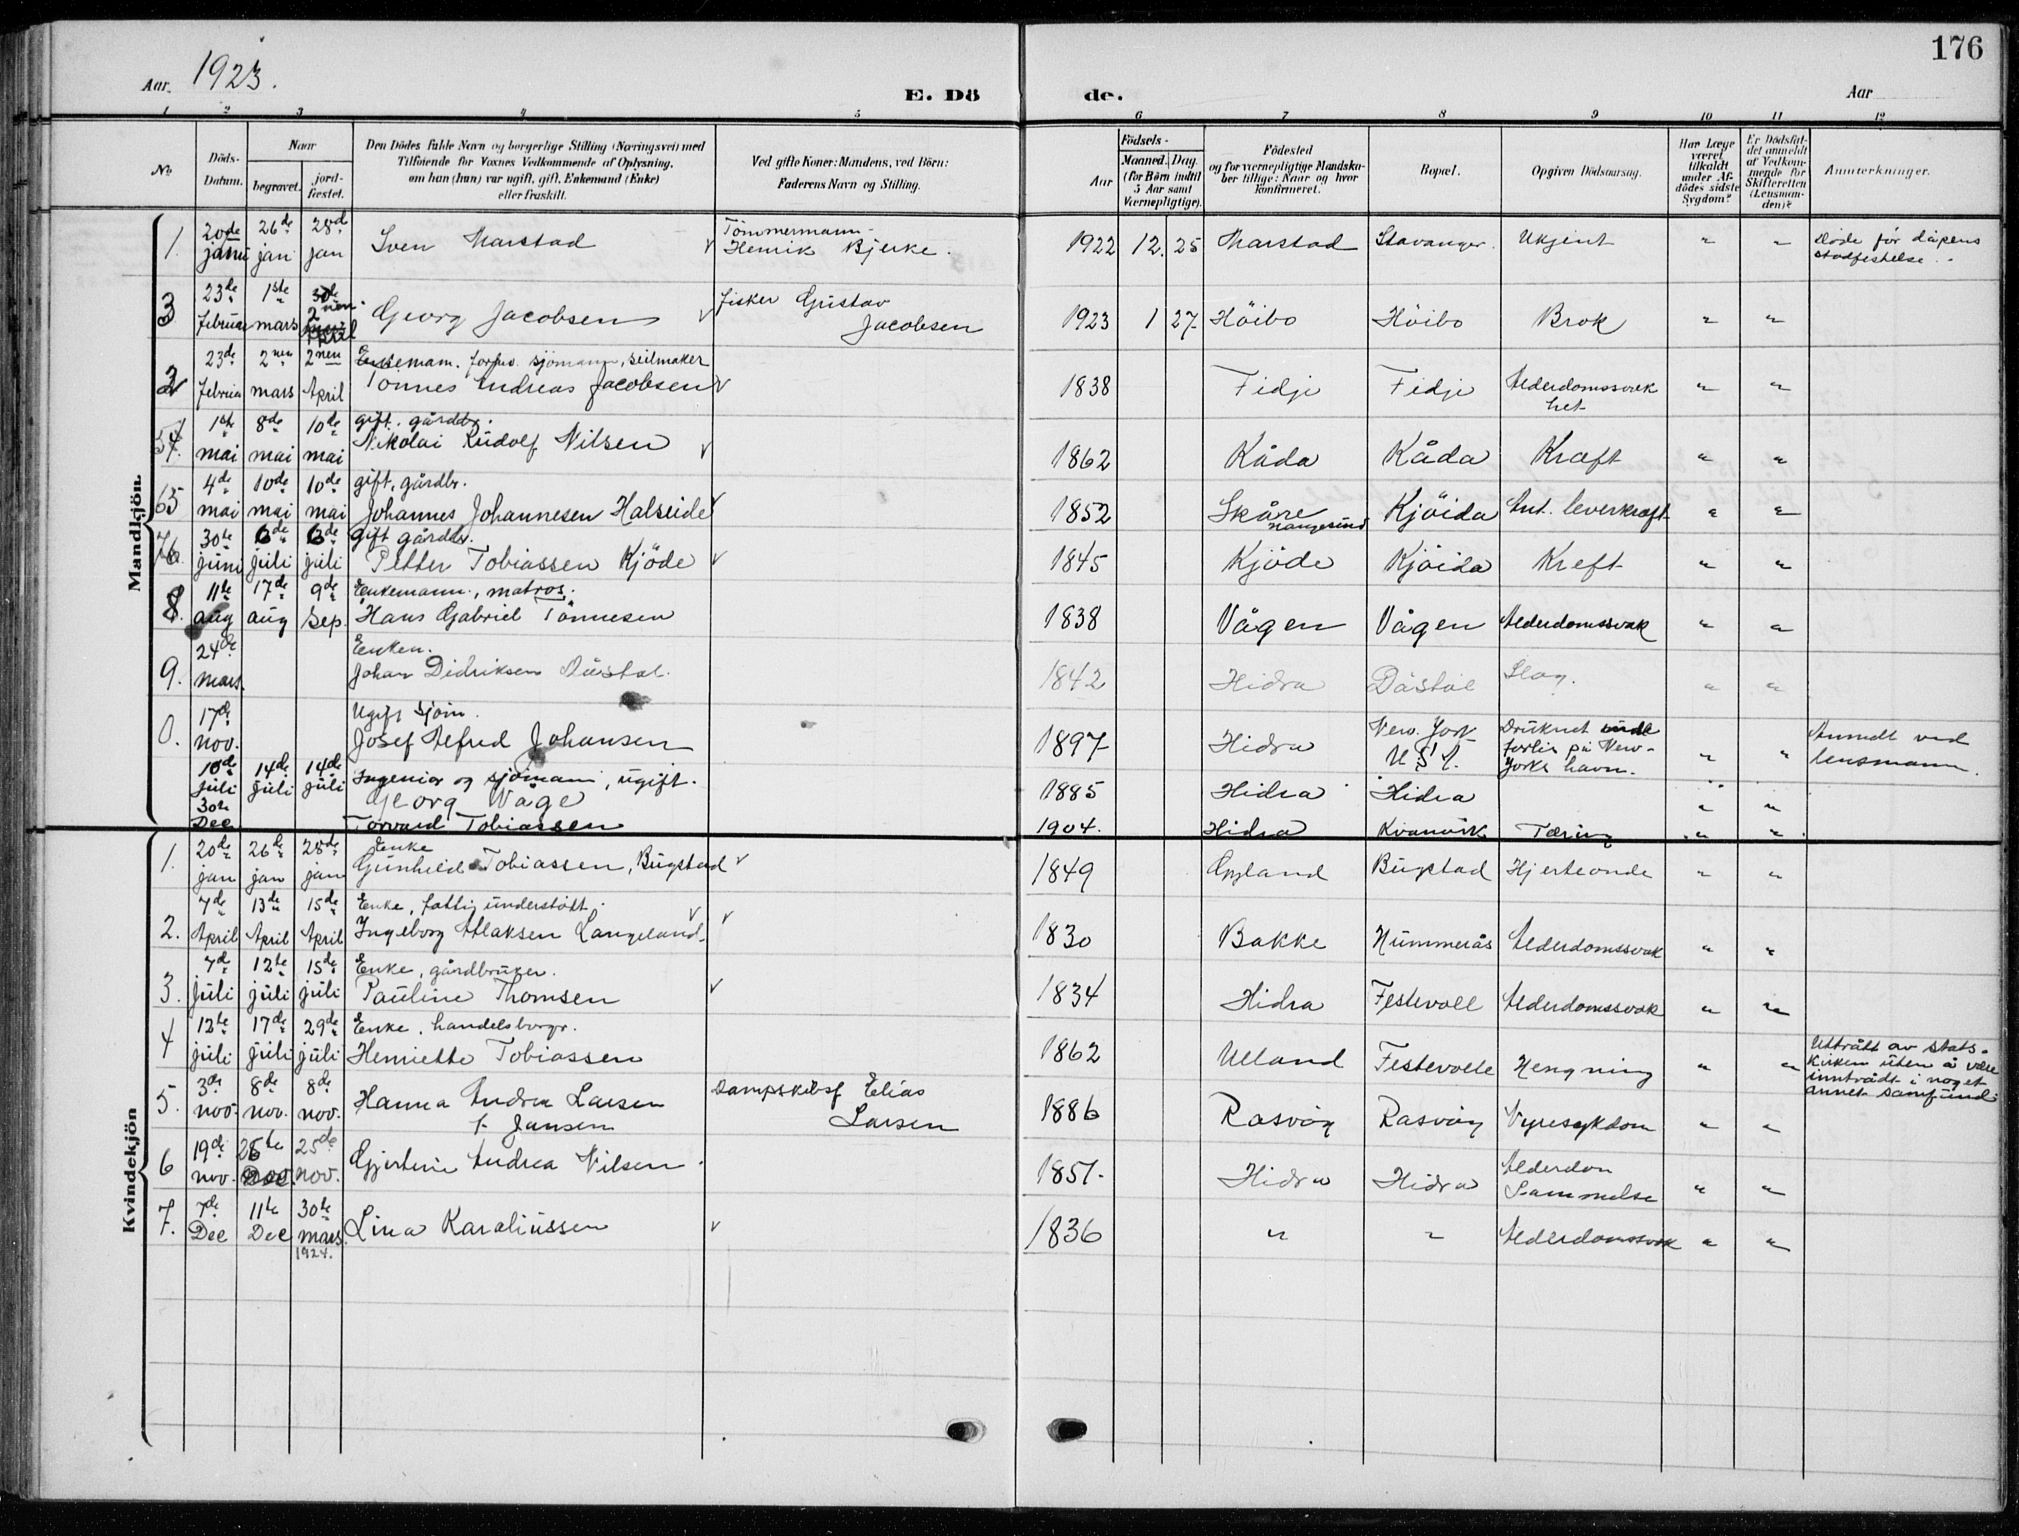 176
Aar. 1923.
E. Dö de.
Aar
1 2 3 4 5 6 7 8 9 10 11 12
№
Döds-
Datum.
Naar
begravet.
jord-
fæstet.
Den Dödes fulde Navn og borgerlige Stilling (Næringsvei) med
Tilföiende for Voxnes Vedkommende af Oplysning,
om han (hun) var ugift, gift, Enkemand (Enke)
eller fraskilt.
Ved gifte Koner: Mandens, ved Börn:
Faderens Navn og Stilling.
Födsels-
Aar
Maaned. Dag.
(for Börn indtil
5 Aar samt
Værnepligtige).
Födested
og for værnepligtige Mandska-
ber tillige: Naar og hvor
konfirmeret.
Bopæl.
Opgiven Dödsaarsag.
Har Læge
været
tilkaldt
under Af-
dödes sidste
Sygdom?
Er Dödsfal-
det anmeldt
af Vedkom-
mende for
Skifteretten
(Lensman-
den)?
Anmærkninger.
Mandkjön.
1. 20de janu 26de jan 28de jan Sven Marstad Tömmermann Henrik Bjerke. 1922 12. 25 Marstad Stavanger. Ukjent " " Döde för dåpens
stadfestelse.
3 23de februar 1ste mars 2nen April Georg Jacobsen Fisker Gustav
Jacobsen 1923 1 27. Höibo Höibo Brok " "
2 23de februar 2nen mars 2nen April Enkemann. forhv. sjömann, seilmaker
Tönnes Andreas Jacobsen 1838 Fidje Fidje Alderdomssvak
het " "
4. 1ste mai 8de mai 10de mai gift. gårdbr.
Nikolai Rudolf Nilsen 1862 Kåda Kåda Kræft " "
5 4de mai 10de mai 10de mai gift. gårdbr.
Johannes Johannesen Halseide 1852 Skåre Kjöida Ant. leverkræft " "
6. 30te juni 6de juli 6de juli gift gårdbr.
Petter Tobiassen Kjöde 1845 Kjöde Kjöida Kreft " "
8. 11te aug 17de aug 9de Sep. Enkemann, matros.
Hans Gabriel Tönnesen 1838 Vågen Vågen Alderdomssvak " "
9. 24de mars. Enkem.
Johan Didriksen Dåstöl. 1842 Hidra Dåstöl Slag. " "
0. 17de nov. Ugift sjöm.
Josef Alfred Johansen 1897 Hidra New. York
U S A. Druknet
forlis på New-
Yorks havn. " " Anmeldt ved
lensmann.
10de juli 14de juli 14de juli Ingeniör og sjömann, ugift.
Georg Våge 1885 Hidra Hidra " "
30te Dec Torvard Tobiassen 1904. Hidra Kvanvik Tæring " "
Kvindekjön
1. 20de jan 26de jan 28de jan Enke
Gunhild Tobiassen, Bugstad 1849 Opland Bugstad Hjerteonde " "
2. 7de April 13de April 15de April Enke, fattig understött.
Ingeborg Aslaksen Langeland. 1830 Bakke Hummerås Alderdomssvak " "
3. 7de juli 12te juli 15de juli Enke, gårdbruker.
Pauline Thomsen 1834 Hidra Festevoll Alderdomssvak " "
4 12te juli 17de juli 29de juli Enke, handelsborgr.
Henriette Tobiassen 1862 Ueland Festevolle Hengning " " Utträtt av stats-
kirken uten å være
innträdt i noget
annet samfund.
5. 3de nov. 8de nov. 8de nov. Hanna Andrea Larsen
f. Jansen Dampskibsf Elias
Larsen 1886 Rasvåg Rasvåg Nyresykdom " "
6 19de nov. 25te 25de nov. Gjertine Andrea Nilsen. 1851. Hidra Hidra Alderdom " "
7. 7de Dec 11te Dec 30te mars.
1924. Lina Karaliussen 1836 " " Alderdomssvak " "